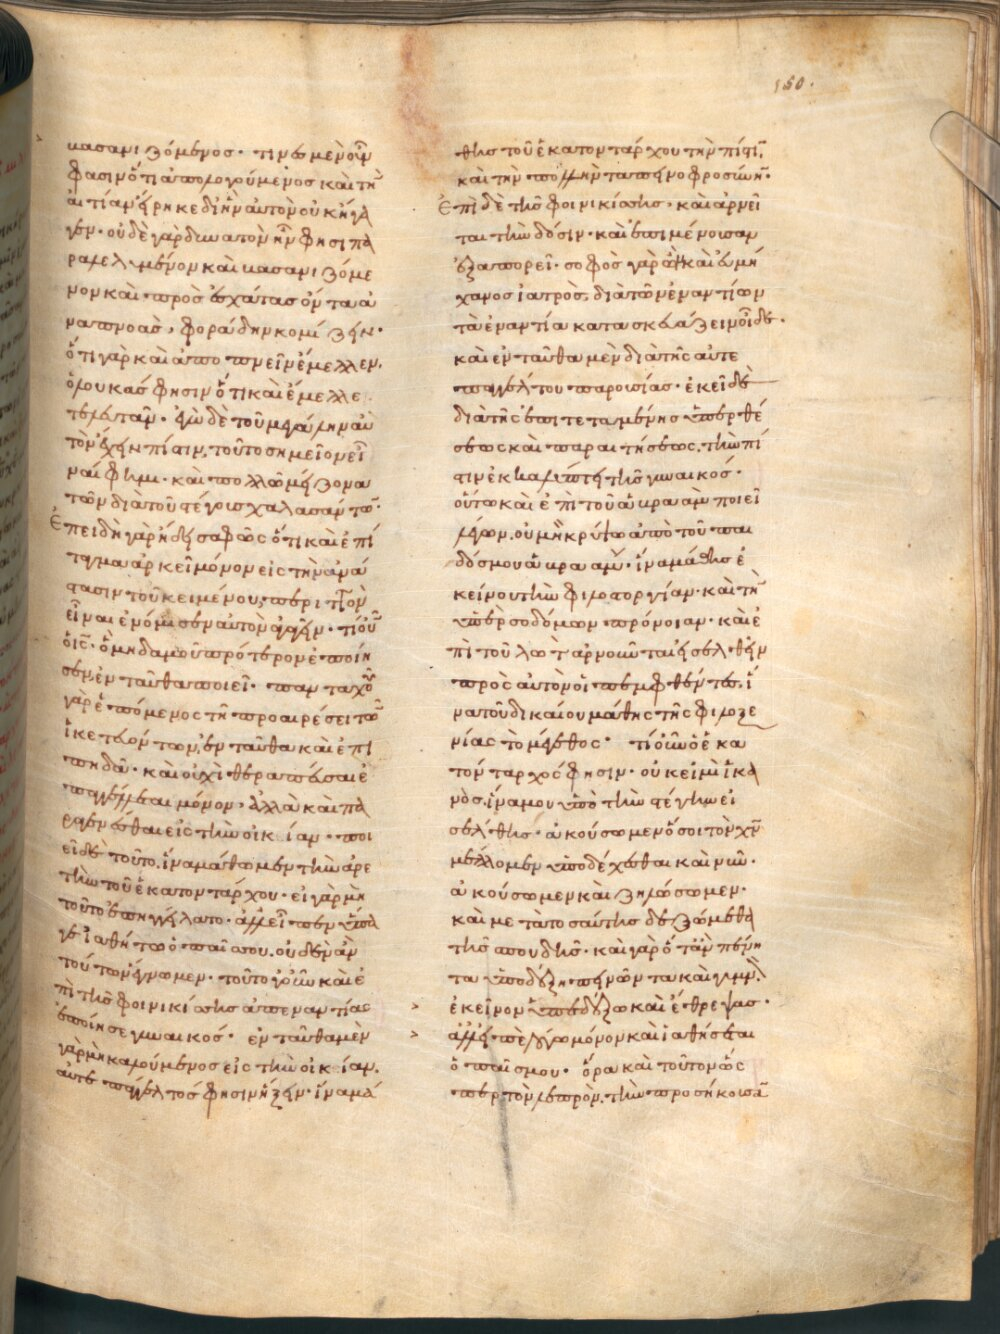 150.
μασανιζόμενος· τινὲς μὲν οὖν
φασιν ὅτι ἀπολογούμενος καὶ τὴν
αἰτίαν εἴρηκε δι' ἣν αὐτὸν οὐκ ἤγα
γεν· οὐδὲ γὰρ δυνατὸν ἦν φησι πα
ραλελυμένον καὶ βασανιζόμε
νον καὶ πρὸς ἐσχάτας ὄντα ἀ
ναπνοὰς, φοράδην κομίζειν·
ὅτι γὰρ καὶ ἀποπνεῖν ἔμελλεν,
ὁ λουκάς φησιν ὅτι καὶ ἔμελλε
τελευτᾶν· ἐγὼ δὲ τοῦ μεγάλην αὐ
τὸν ἔχειν πίστιν, τοῦτο σημεῖον εἶ
ναί φημι· καὶ πολλῶ μείζονα
τῶν διὰ τοῦ στέγους χαλασάντων·
Ἐπειδὴ γὰρ ἤδει σαφῶς ὅτι καὶ ἐπί
ταγμα ἀρκεῖ μόνον εἰς τὴν ἀνά
στασιν τοῦ κειμένου, περιττὸν
εἶναι ἐνόμισεν αὐτὸν ἄγειν· τί οὖν
ὁ ις̅· ὃ μηδαμοῦ πρότερον ἐποίη
σεν, ἐνταῦθα ποιεῖ· πανταχοῦ
γὰρ ἑπόμενος τῆ προαιρέσει τῶν
ἱκετευόντων, ἐνταῦθα καὶ ἐπι
πηδᾶ· καὶ οὐχὶ θεραπεῦσαι ἐ
παγγέλλεται μόνον· ἀλλὰ καὶ πα
ραγενέσθαι εἰς τὴν οἰκίαν· ποι
εῖ δὲ τοῦτο, ἵνα μάθωμεν τὴν ἀρε
τὴν τοῦ ἑκατοντάρχου· εἰ γὰρ μὴ
τοῦτο ἐπηγγείλατο· ἀλλ' εἶπεν ὕπα
γε ἰαθήτω ὁ παῖς σου, οὐδὲν ἂν
τούτων ἔγνωμεν· τοῦτο γοῦν καὶ ἐ
πὶ τῆς φοινικίσσης ἀπεναντίας
ἐποίησε γυναικός· ἐνταῦθα μὲν
γὰρ μὴ καλούμενος εἰς τὴν οἰκίαν,
αὐτεπάγγελτός φησιν ἥξειν· ἵνα μά
θῃς τοῦ ἑκατοντάρχου τὴν πίστιν,
καὶ τὴν πολλὴν ταπεινοφροσύνην·
Ἐπὶ δὲ τῆς φοινικίσσης· καὶ ἀρνεῖ
ται τὴν δόσιν· καὶ ἐπιμένουσαν
ἐξαπορεῖ· σοφὸς γὰρ ὢν καὶ εὐμή
χανος ἰατρὸς, διὰ τῶν ἐναντίων
τὰ ἐναντία κατασκευάζειν οἶδε·
καὶ ἐνταῦθα μὲν διὰ τῆς αὐτε
παγγέλτου παρουσίας· ἐκεῖ δὲ
διὰ τῆς ἐπιτεταμένης ὑπερθέ
σεως καὶ παραιτήσεως, τὴν πί
στιν ἐκκαλύπτει τῆς γυναικός·
οὕτω καὶ ἐπὶ τοῦ ἀβραὰμ ποιεῖ
λέγων, οὐ μὴ κρύψω ἀπὸ τοῦ παι
δός μου ἀβραάμ· ἵνα μάθῃς ἐ
κείνου τὴν φιλοστοργίαν· καὶ τὴν
ὑπὲρ σοδόμων πρόνοιαν· καὶ ἐ
πὶ τοῦ λὼτ ἀρνοῦνται εἰσελθεῖν
πρὸς αὐτὸν οἱ πεμφθέντες, ἵ
να τοῦ δικαίου μάθῃς τῆς φιλοξε
νίας τὸ μέγεθος· τί οὖν ὁ ἑκα
τόνταρχός φησιν· οὐκ εἰμὶ ἱκα
νὸς, ἵνα μου ὑπὸ τὴν στέγην εἰ
σέλθῃς· ἀκούσωμεν ὅσοι τὸν χν̅
μέλλομεν ὑποδέχεσθαι καὶ νῦν·
ἀκούσωμεν καὶ ζηλώσωμεν·
καὶ μετὰ τοσαύτης δεξώμεθα
τῆς σπουδῆς· καὶ γὰρ ὅταν πένη
τα ὑποδέξῃ πεινῶντα καὶ γυμνὸν
ἐκεῖνον ὑπεδέξω καὶ ἔθρεψας·
ἀλλ' εἰπὲ λόγω μόνον καὶ ἰαθήσεται
ὁ παῖς μου· ὅρα καὶ τοῦτον ὡς
περ τὸν λεπρὸν, τὴν προσήκουσαν